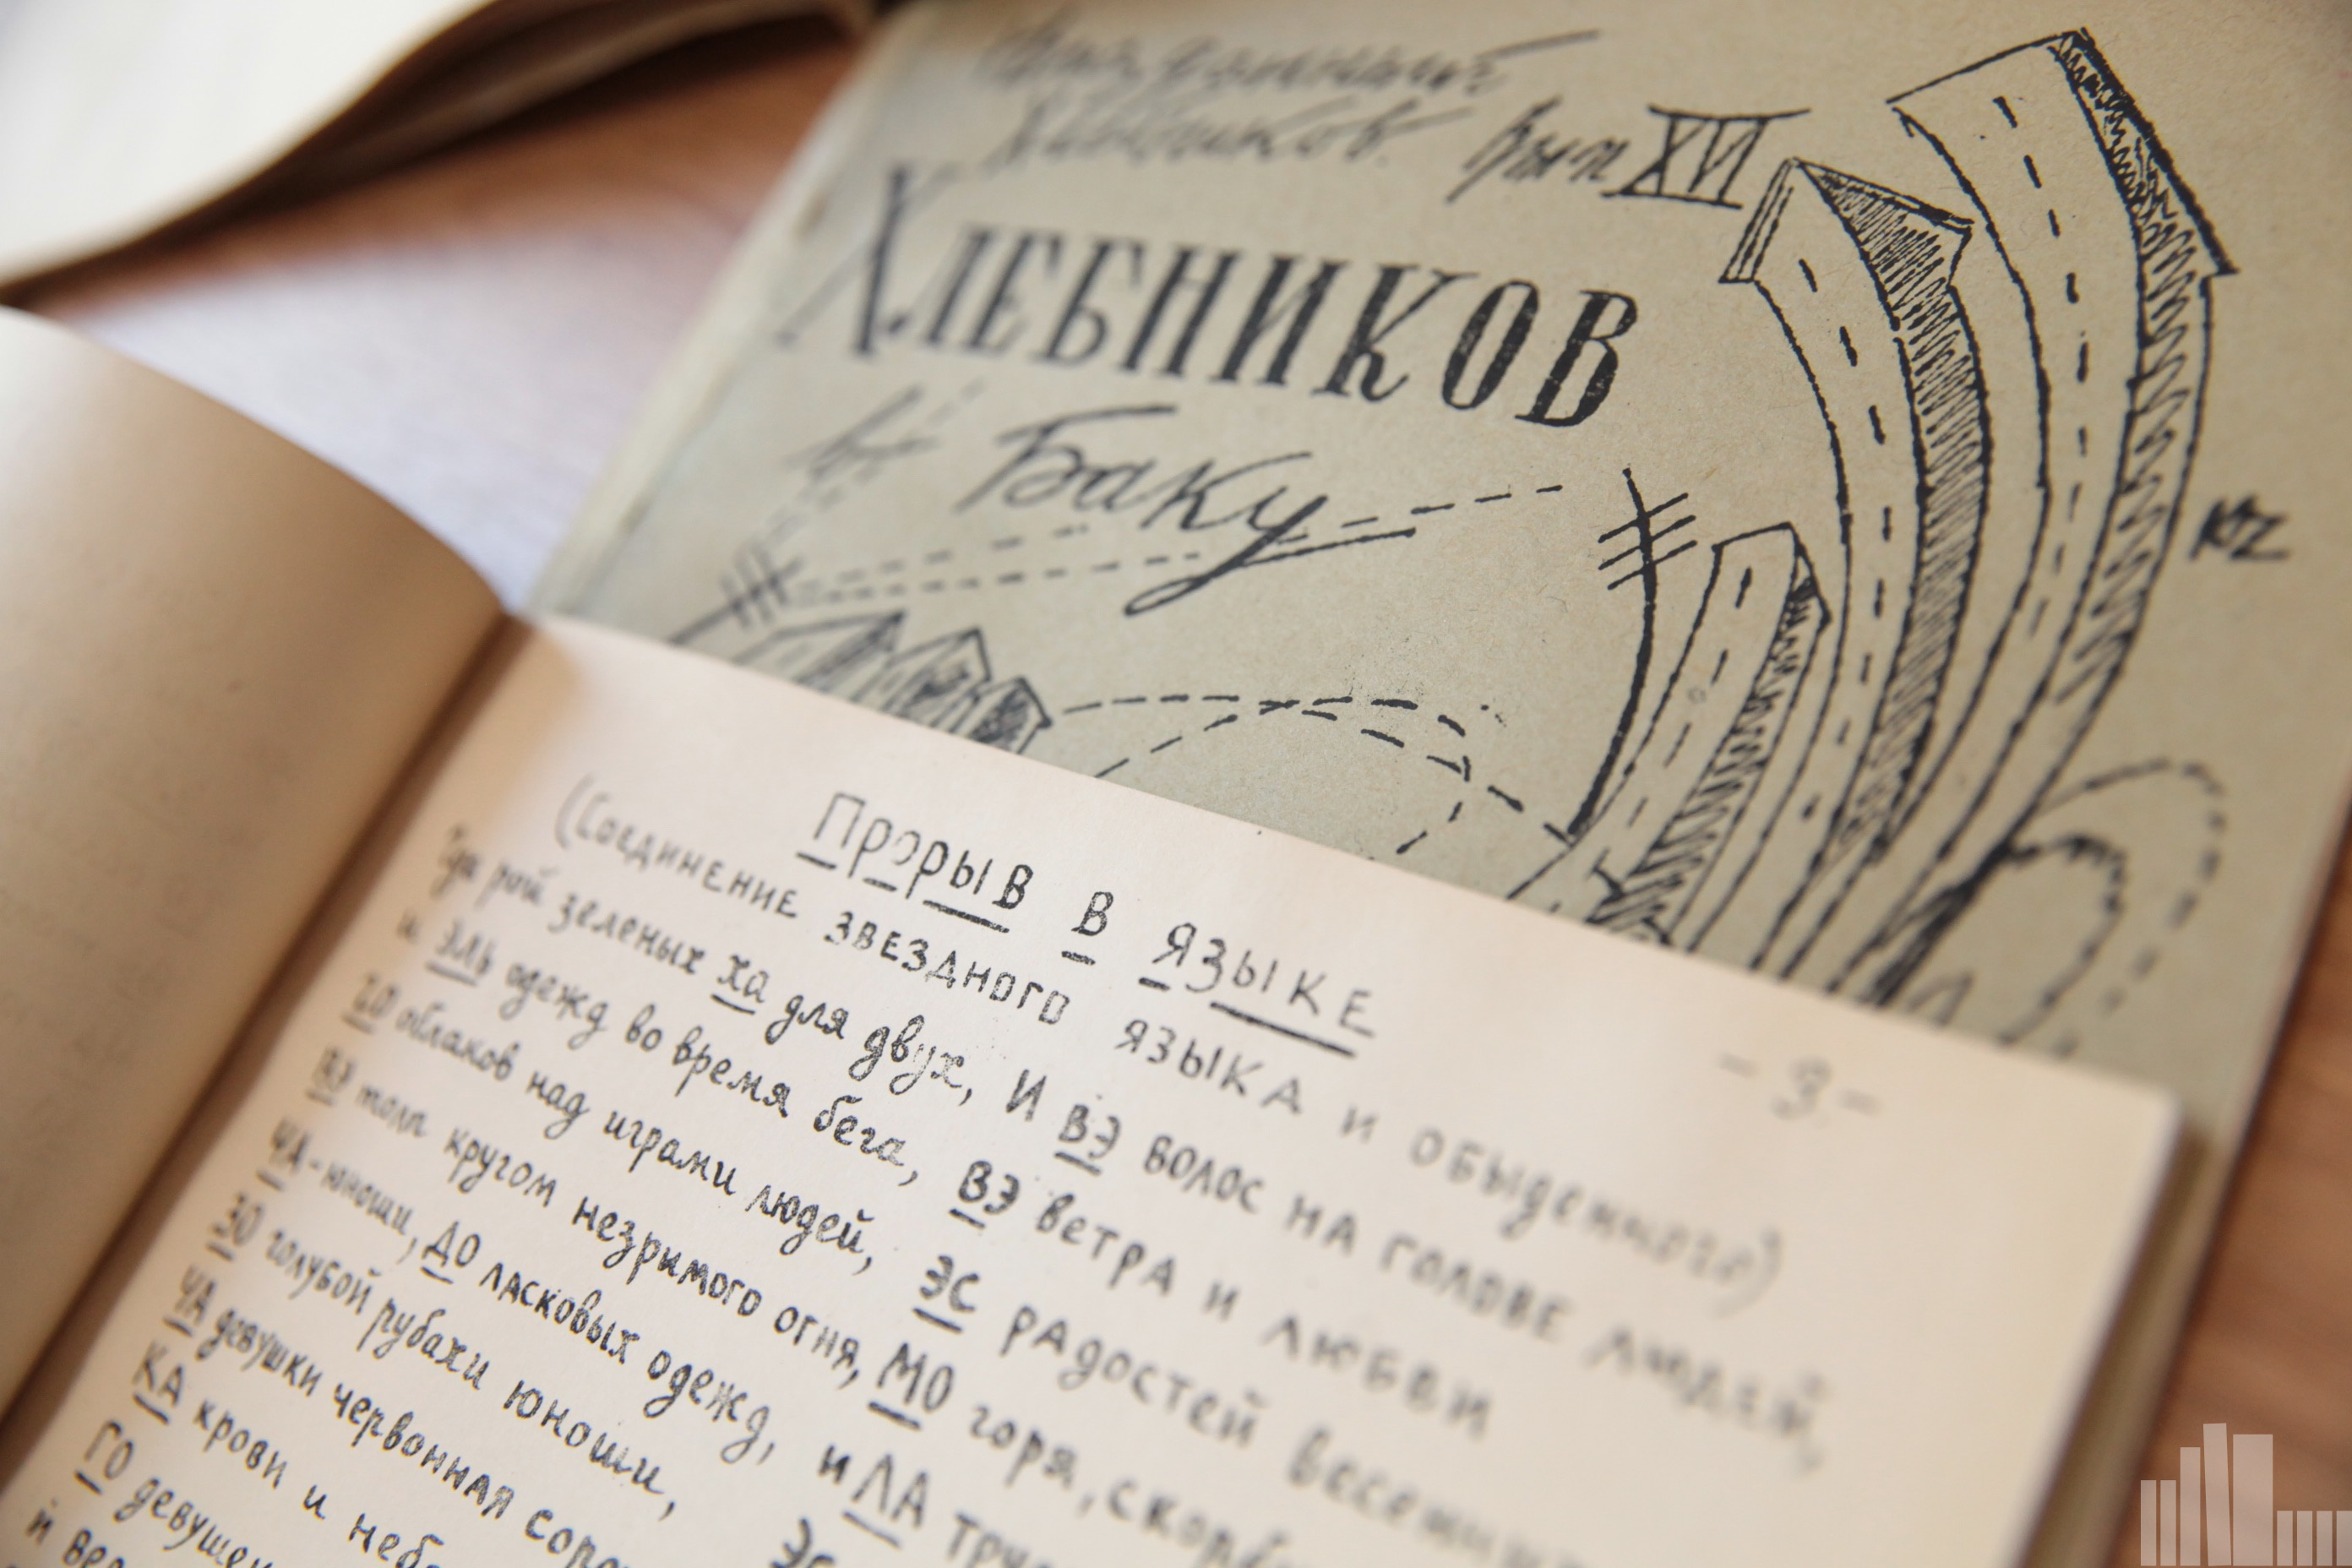 Хлебников. Вып XVI
ХЛЕБНИКОВ
в Баку
KZ
- 3.-
Прорыв в языке
(Соединение звездного языка и обыденного)
Где рой зеленых ХА для двух, И ВЭ волос на голове людей,
и ЭЛЬ одежд во время бега, ВЭ ветра и любви
ГО облаков над играми людей, ЭС радостей весенних
ВЭ толп кругом незримого огня, МО горя, скорби
ЧА-юноши, ДО ласковых одежд, и ЛА
ЗО голубой рубахи юноши,
ЧА девушки червонная
КА крови и
ГО